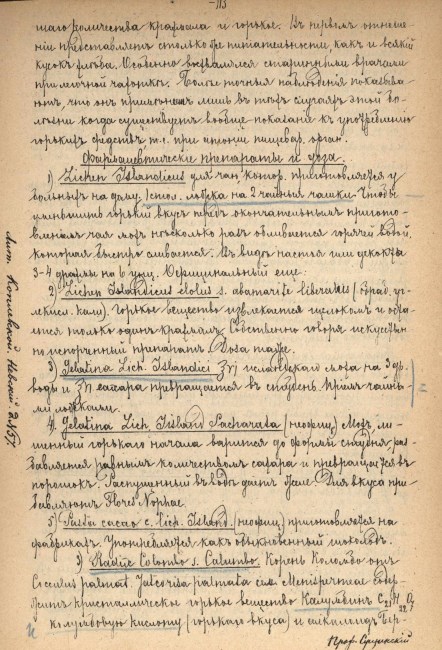 - 113
шаго количества крахмала и горькое. Въ первомъ отноше-
ніи представляетъ столько же питательности, какъ и всякій
кусокъ хлѣба. Особенно восхвалялся старинными врачами
при мочной чахоткѣ. Болѣе точныя наблюденія показыва-
ютъ, что онъ примѣнимъ лишь въ тѣхъ случаяхъ этой бо-
лѣзни когда существуетъ вообще показаніе къ употребленію
горькихъ средствъ т.е. при атоніи пищевар. орган.
Фармацевтические препараты и доза.
1) Lichen Islandicus для чая котор. приготовляется у
больныхъ на дому. 1 стол. ложка на 2 чайныя чашки. Чтобы
уменьшить горькій вкусъ передъ окончательнымъ пригото-
вленіемъ чая мохъ нѣсколько разъ обливается горячей водой,
которая быстро сливается. Въ видѣ настоя или декокта
3-4 драхмы на 6 унц. Оффицинальный еще:
2) Lichen Islandicus elotus s. ab amaritie liberatus
лекисл. кали). Горькое вещество извлекается цѣликомъ и оста-
ется только одинъ крахмалъ. Собственно говоря искуственно
испорченный препаратъ. Доза таже.
3) Gelatina Lich. Islandici ℥vj исландскаго мха на
воды и ℥vj сахара превращается въ студень. Пріемъ чайны-
ми ложками.
4) Gelatina Lich. Island Sacharata (неофиц.) Мохъ, ли-
шенный горькаго начала варится до формы студня, раз-
бавляется равнымъ количествомъ сахара и превращается въ
порошокъ. Распущенный въ водѣ даетъ желе. Для вкуса при-
бавляютъ Flores Naphae.
5) Pasta cacao c. lich. Island. (неофиц.) приготовляется на
фабрикахъ. Употребляется какъ обыкновенный шоколадъ.
3) Radix Colombo s. Calumbo. Корень Коломбо отъ
Cocculus palmat Jateorhiza palmata сем. Menispermeae содер-
житъ кристаллическое горькое вещество Калумбинъ C21 H22 O7
колумбовую кислоту (горькаго вкуса) и алкалоидъ Бер-
Проф. Сущинскій
Лит. Копелевской. Невскій д. №57.